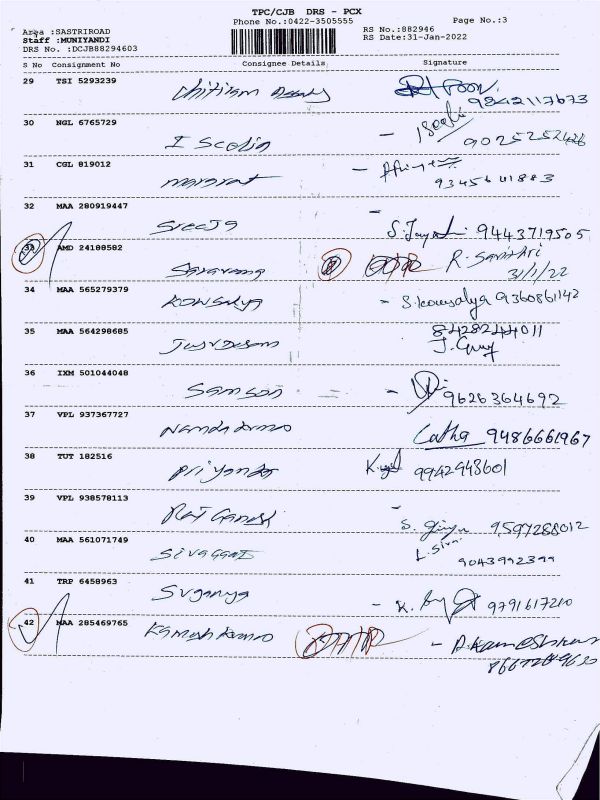 TPC/CJB DRS - PCX
Phone No.:0422-3505555 Page No.:3
Area :SASTRIROAD RS No.:882946
Staff :MUNIYANDI RS Date:31-Jan-2022
DRS No. :DCJB88294603
S No Consignment No Consignee Details Signature
29 TSI 5293239
9842117673
30 NGL 6765729 I Scelin
9025252426
31 CGL 819012
9345641883
32 MAA 280919447 Sreeja
S. Jayanthi 9443719505
33 AMD 24188582 Saravana R. Savithri
31/1/22
34 MAA 565279379 Kowsalya S. Kowsalya 9360861142
35 MAA 564298685 8428244011
36 IXM 501044048 Samson 9626364692
37 VPL 937367727 Nanda Kumar Latha 9486661967
38 TUT 182516 Priyanka 9942948601
39 VPL 938578113 Raj Ganesh
S. 9597288012
40 MAA 561071749
9043992399
41 TRP 6458963 Suganya
K. 9791617210
42 MAA 285469765 Kamesh Kumar